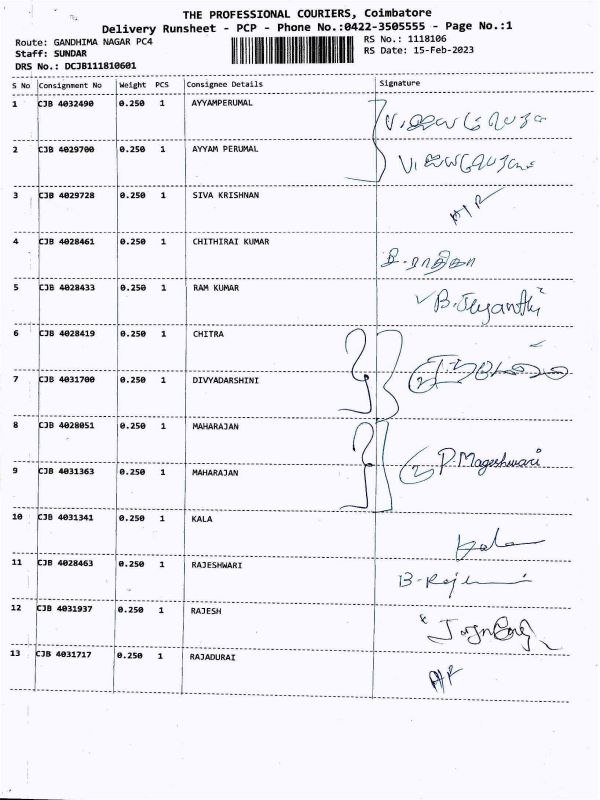 THE PROFESSIONAL COURIERS, Coimbatore
Delivery Runsheet - PCP - Phone No.:0422-3505555 - Page No.:1
Route: GANDHIMA NAGAR PC4
RS No.: 1118106
Staff: SUNDAR
RS Date: 15-Feb-2023
DRS No.: DCJB111810601
S No Consignment No Weight PCS Consignee Details Signature
1 CJB 4032490 0.250 1 AYYAMPERUMAL
2 CJB 4029700 0.250 1 AYYAM PERUMAL
3 CJB 4029728 0.250 1 SIVA KRISHNAN
4 CJB 4028461 0.250 1 CHITHIRAI KUMAR
5 CJB 4028433 0.250 1 RAM KUMAR B. Jeyanthi
6 CJB 4028419 0.250 1 CHITRA
7 CJB 4031700 0.250 1 DIVYADARSHINI
8 CJB 4028051 0.250 1 MAHARAJAN
P. Mageshwari
9 CJB 4031363 0.250 1 MAHARAJAN
10 CJB 4031341 0.250 1 KALA Kala
11 CJB 4028463 0.250 1 RAJESHWARI
12 CJB 4031937 0.250 1 RAJESH
13 CJB 4031717 0.250 1 RAJADURAI